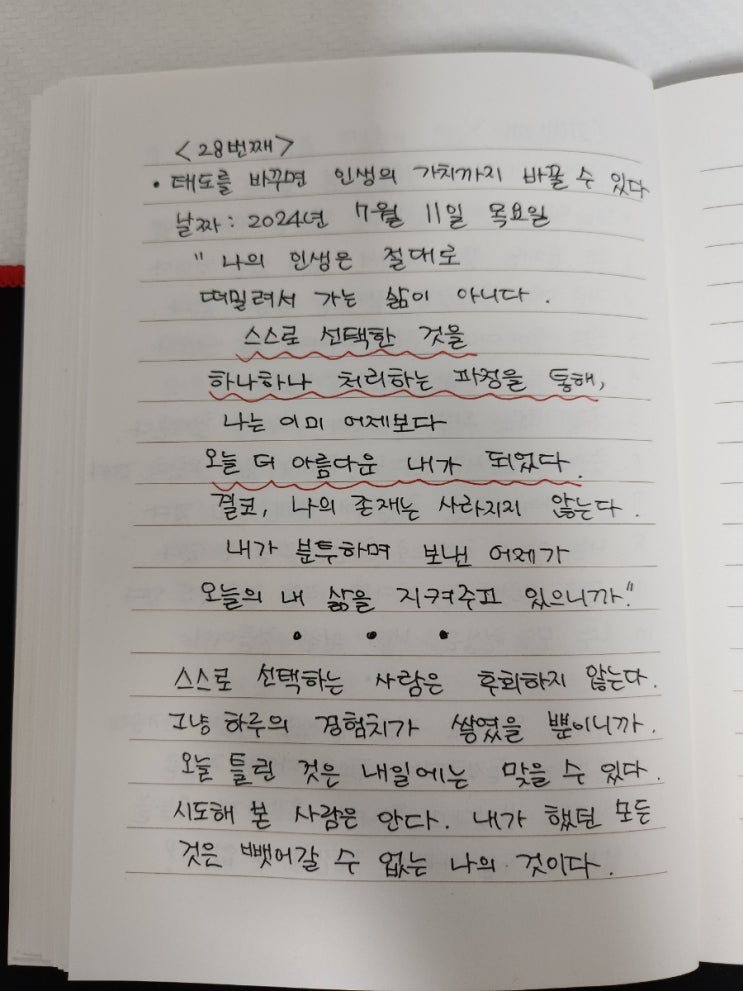 <28번째>
• 태도를 바꾸면 인생의 가치까지 바꿀 수 있다
날짜 : 2024년 7월 11일 목요일
" 나의 인생은 절대로
떠밀려서 가는 삶이 아니다.
스스로 선택한 것을
하나하나 처리하는 과정을 통해,
나는 이미 어제보다
오늘 더 아름다운 내가 되었다.
결코, 나의 존재는 사라지지 않는다.
내가 분투하며 보낸 어제가
오늘의 내 삶을 지켜주고 있으니까."
• • •
스스로 선택하는 사람은 후회하지 않는다.
그냥 하루의 경험치가 쌓였을 뿐이니까.
오늘 틀린 것은 내일에는 맞을 수 있다.
시도해 본 사람은 안다. 내가 했던 모든
것은 뺏어갈 수 없는 나의 것이다.